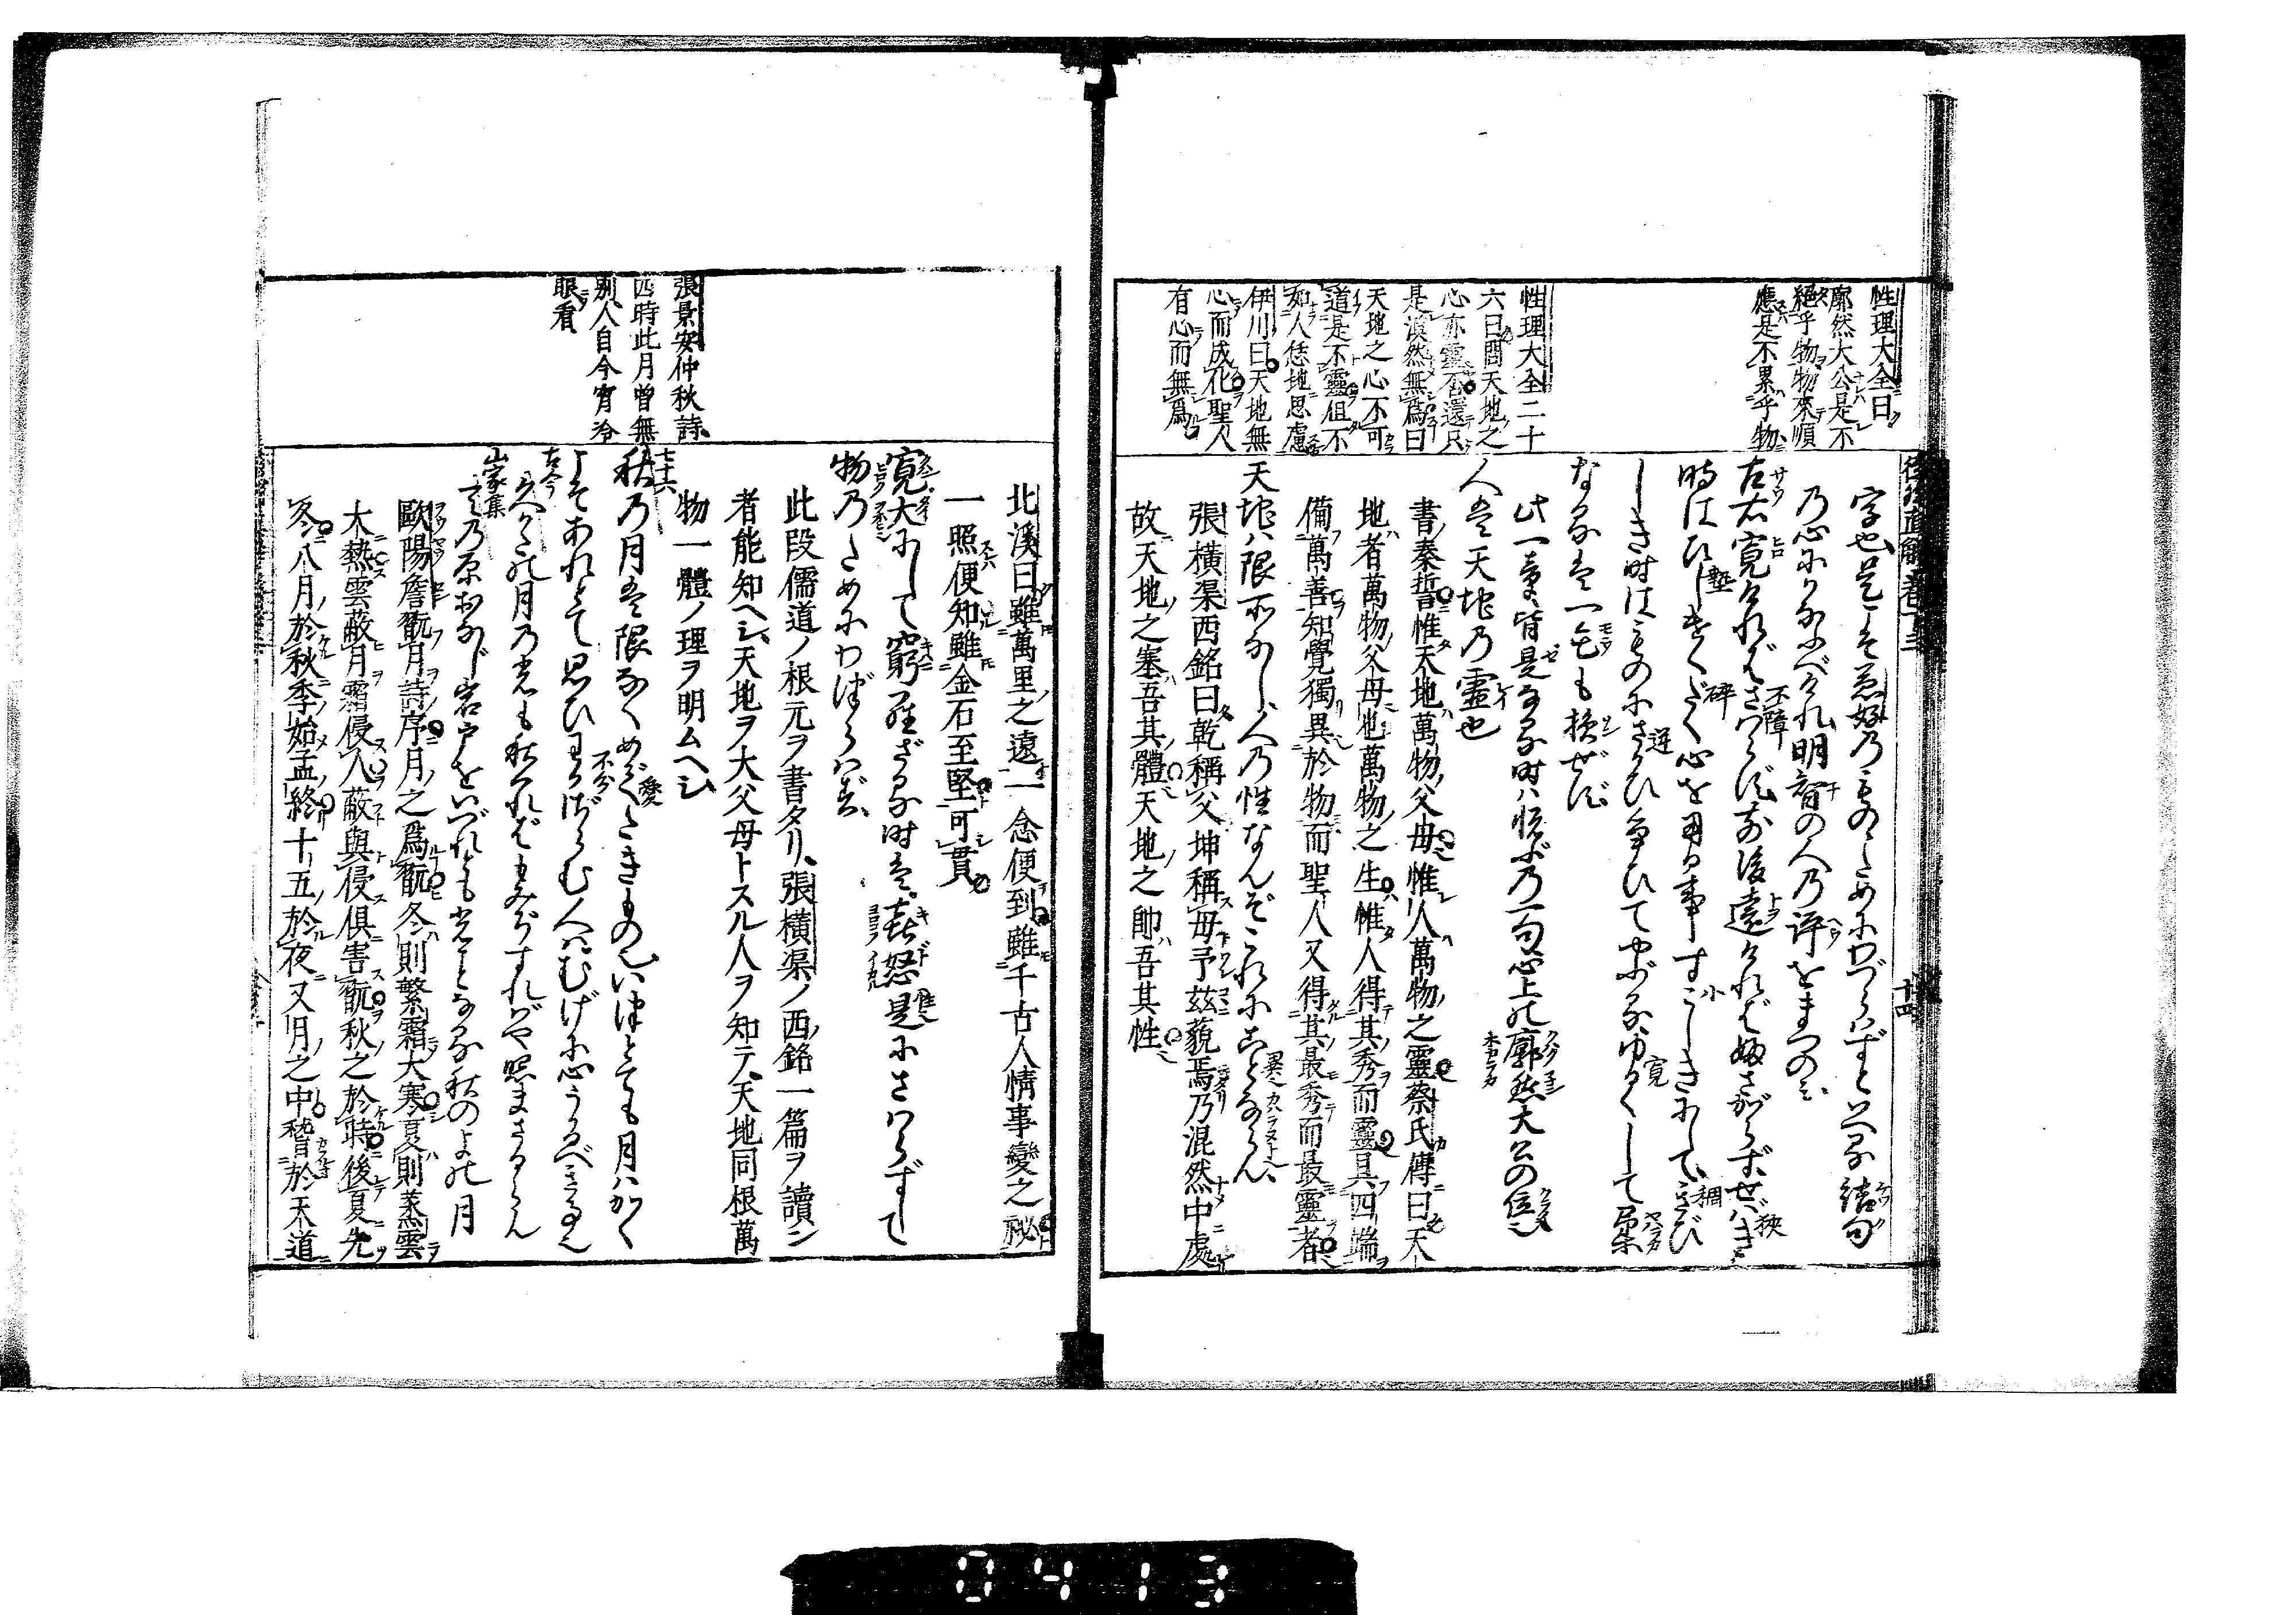 性理大全曰
廓然大公是不
絕乎物物來順
應是不累乎物
性理大全二十
六曰問天地之
心亦靈否還只
是漠然無爲曰
天地之心不可
道是不靈但不
如人恁地思慮
伊川曰天地無
心而成化聖人
有心而無爲
徒然直解 卷下三
十四
字也是こそ愚好乃ものゝためにわづらはずといへる結句
乃心にかなふべけれ明智の人乃評をまつのミ
左右寛ければさはらず前後遠ければふさがらずせばき
時はひしげくだく心を用る事すこしきにして、きび
しき時はものにさかひ爭ひてやぶるゆるくして柔
なる是一毛も損ぜず
此一章皆是なる時ハ悅ぶ乃一句心上の廓然大公の位ニ
人是天地乃靈也
書泰誓惟天地萬物父母惟人萬物之靈蔡氏傳曰天
地者萬物父母也萬物之生惟人得其秀而靈具四端
備萬善知覺獨異於物而聖人又得其最秀而最靈者
天地ハ限所なし人乃性なんぞこれにことならん、
張橫渠西銘曰乾稱父坤稱母予茲藐焉乃混然中處
故天地之塞吾其體天地之帥吾其性
張景安仲秋詩
四時此月曾無
別人自今宵冷
眼看
北溪曰雖萬里之遠一念便到雖千古人情事變之祕
一照便知雖金石至堅可貫
寬大にして窮らざる時是喜怒是にさはらずして
物乃ためにわづらハず
此段儒道ノ根元ヲ書タリ、張橫渠ノ西銘一篇ヲ讀ン
者能知ヘシ、天地ヲ大父母トスル人ヲ知テ、天地同根萬
物一體ノ理ヲ明ムヘシ
七十六
秋乃月是限なくめでたきものゝいつとても月ハかく
こそあれとて思ひわかざらむ人はむげに心うかるべき事
古今
久かたの月乃
山家集
歐陽詹翫月詩序月之爲翫冬則繁霜大寒夏則蒸雲
大熱雲蔽月霜侵人蔽與侵俱害翫秋之於時後夏先
冬八月於秋季始孟終十五於夜又月之中稽於天道
0413